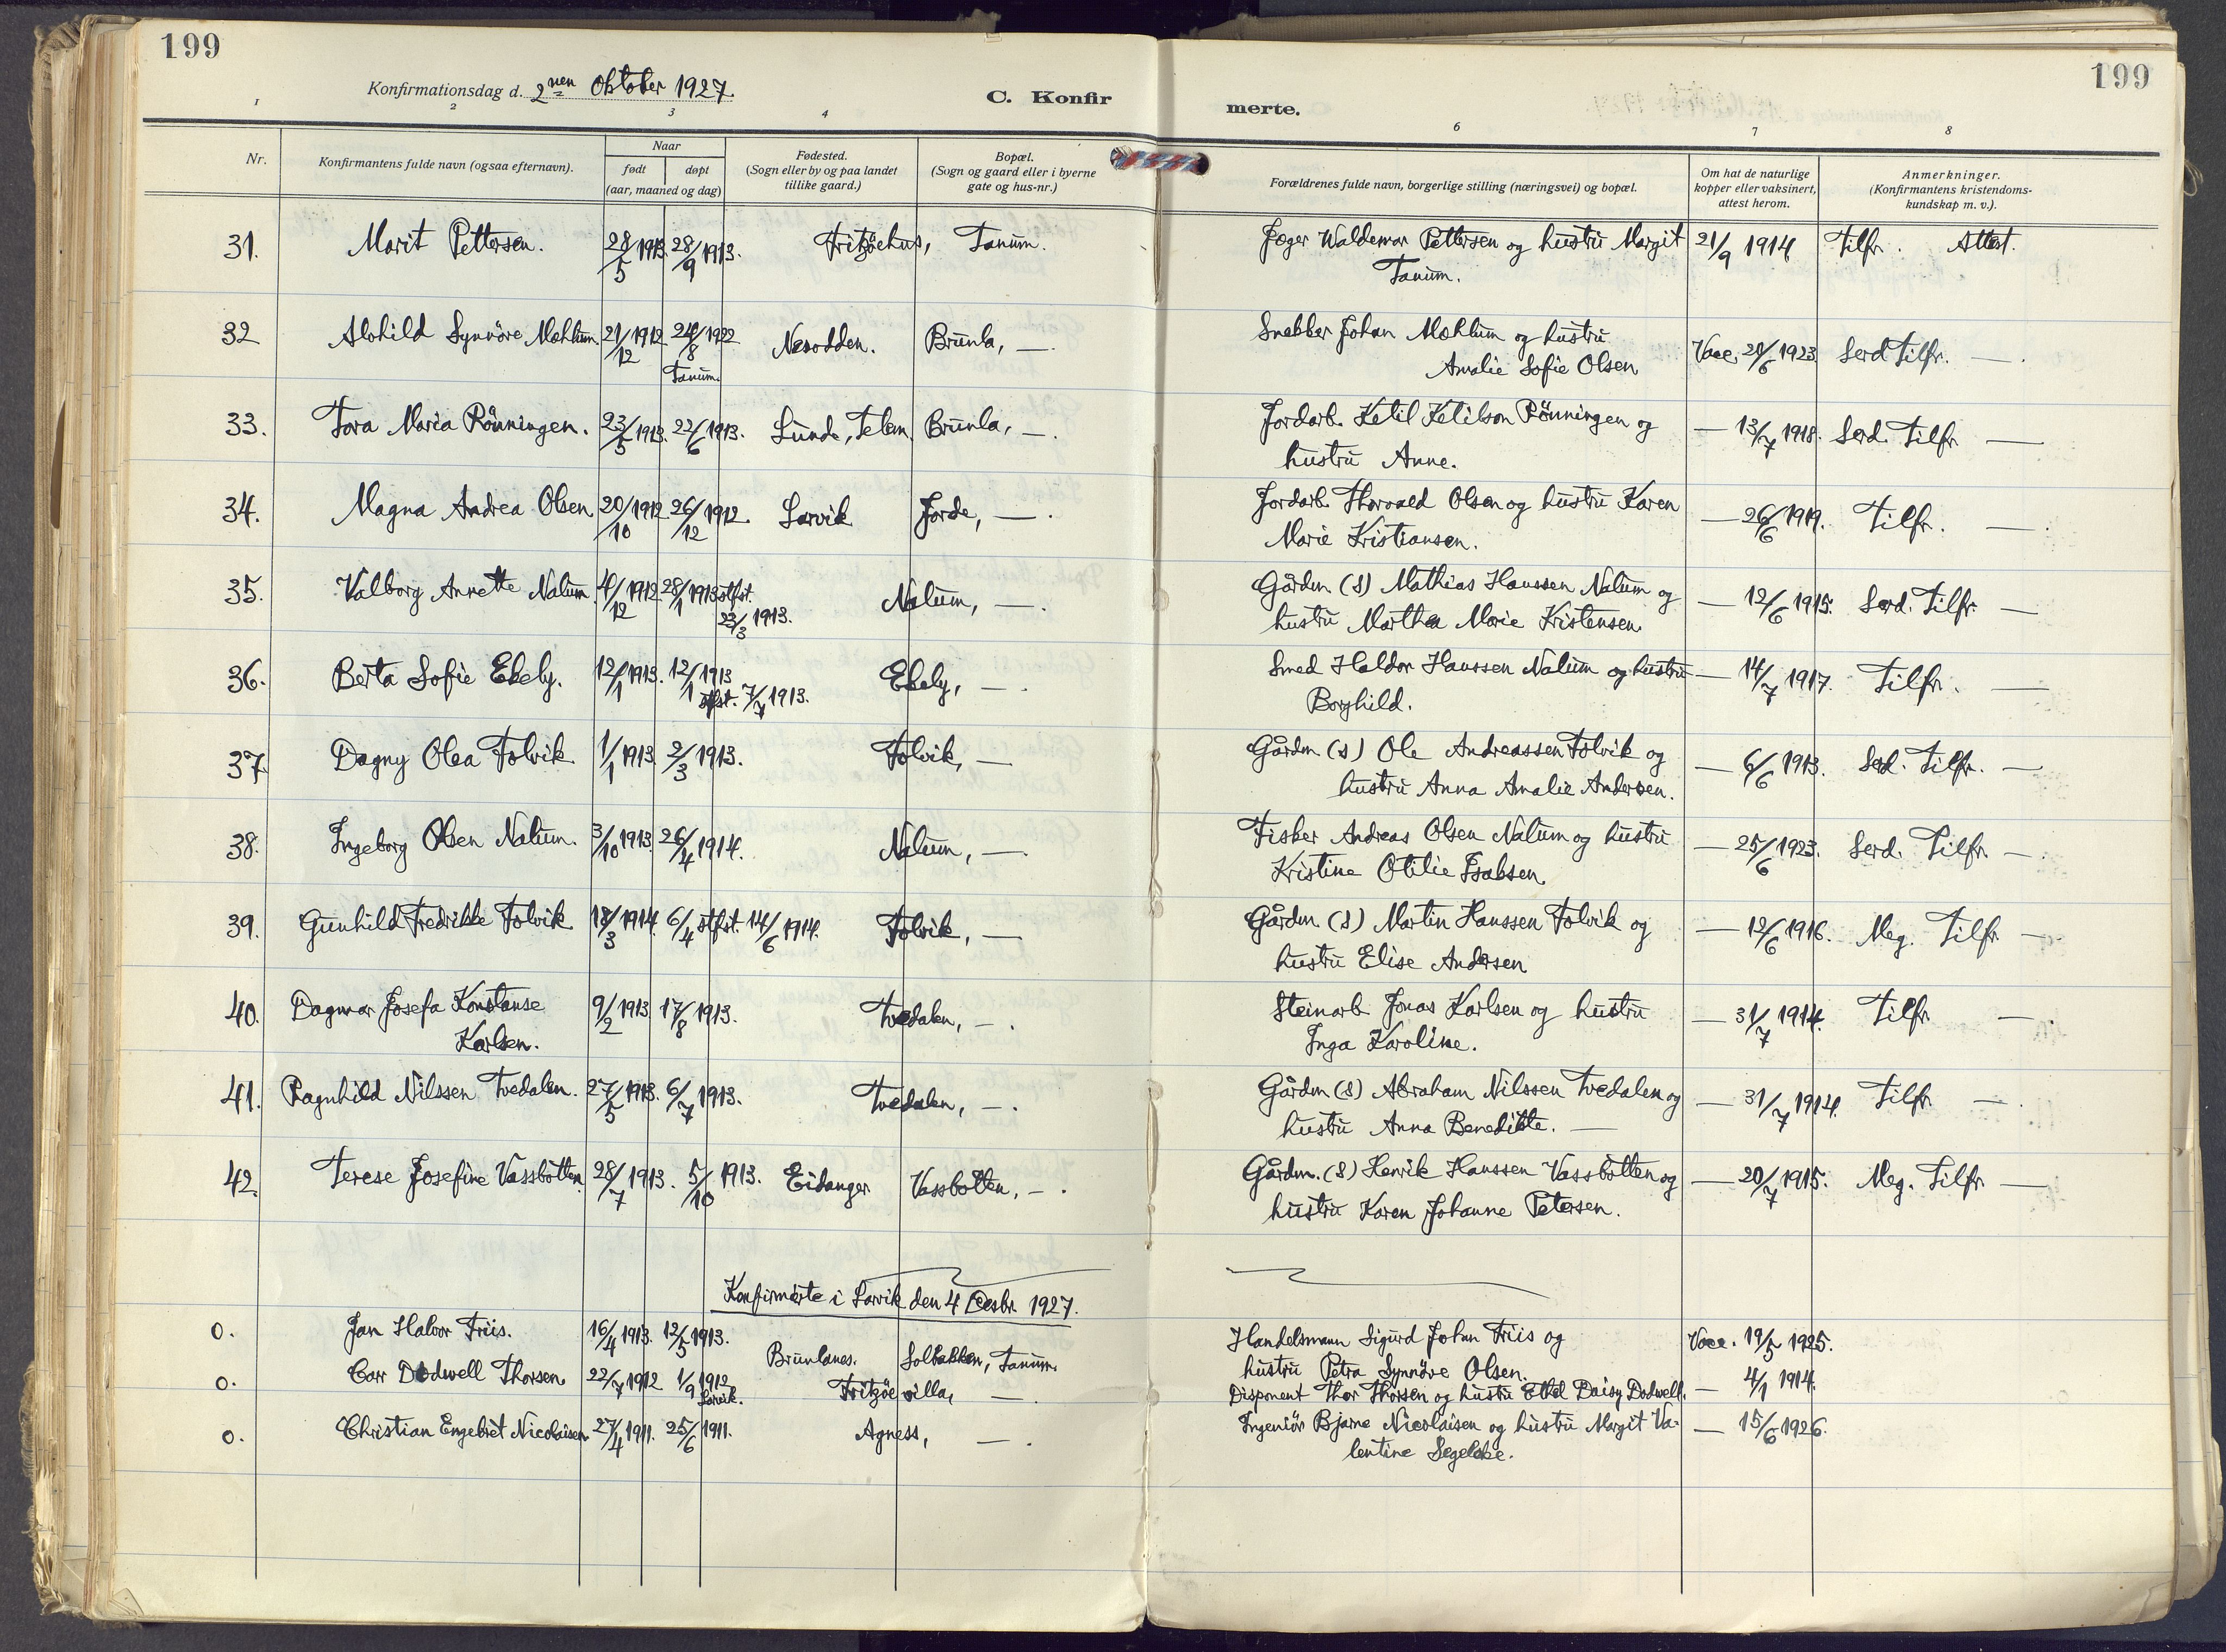 199
199
Konfirmationsdag d. 2nen Oktober 1927.
C. Konfir
merte.
1
2
3
4
6
7
8
Nr.
Konfirmantens fulde navn (ogsaa efternavn).
Naar
født
døpt
(aar, maaned og dag)
Fødested.
(Sogn eller by og paa landet
tillike gaard.)
Bopæl.
(Sogn og gaard eller i byerne
gate og hus-nr.)
Forældrenes fulde navn, borgerlige stilling (næringsvei) og bopæl.
Om hat de naturlige
kopper eller vaksinert,
attest herom.
Anmerkninger.
(Konfirmantens kristendoms-
kundskap m. v.).
31. Marit Pettersen. 28/5 1913. 28/9 1913. Fritzöehus, Tanum. Jæger Waldemar Pettersen og hustru Margit 21/9 1914 Tilfr. Attest.
Tanum.
32 Alvhild Synnöve Mæhlum 21/12 1912 24/8 1922 Nesodden. Brunla, —. Snekker Johan Mæhlum og hustru
Tanum. Amalie Sofie Olsen Vacc. 20/6 1923 Serd Tilfr. —.
33. Tora Maria Rönningen. 23/5 1913. 22/6 1913. Lunde, Telem. Brunla, —. Jordarb. Ketil Ketilson Rönningen og — 13/7 1918. Serd. Tilfr —
hustru Anne.
34. Magna Andrea Olsen 20/10 1912. 26/12 1912. Larvik Jorde, —. Jordarb. Thorvald Olsen og hustru Karen — 26/6 1919. Tilfr. —
Marie Kristiansen.
35. Valborg Annette Nalum 4/12 1912. 28/1 1913 stfst. Nalum, —. Gårdm (S) Mathias Hanssen Nalum og — 12/6 1915. Serd. Tilfr. —
23/3 1913. hustru Marthea Marie Kristensen
36. Berta Sofie Ekely. 12/1 1913. 12/1 1913 Ekely, —. Smed Haldor Hanssen Nalum og hustru — 14/7 1917. Tilfr. —
stfst. 7/7 1913. Borghild.
37. Dagny Olea Folvik 1/1 1913. 2/3 1913. Folvik, — Gårdm (S) Ole Andreassen Folvik og — 6/6 1913. Serd. Tilfr. —
hustru Anna Amalie Andersen.
38. Ingeborg Olsen Nalum. 3/10 1913. 26/4 1914. Nalum, —. Fisker Andreas Olsen Nalum og hustru — 25/6 1923. Serd. Tilfr. —
Kristine Otilie Isaksen
39. Gunhild Fredrikke Folvik 18/3 1914. 6/4 stfst. 14/6 1914. Folvik, — Gårdm (S) Martin Hanssen Folvik og — 12/6 1916. Meg. Tilfr —
hustru Elise Andersen
40. Dagmar Josefa Konstanse 9/2 1913 17/8 1913. Tvedalen, —. Steinarb Jonas Karlsen og hustru — 31/7 1914. Tilfr —
Karlsen. Inga Karoline.
41. Ragnhild Nilssen Tvedalen. 27/5 1913. 6/7 1913. Tvedalen, —. Gårdm (S) Abraham Nilssen Tvedalen og — 31/7 1914. Tilfr —.
hustru Anna Benedikte. —
42. Terese Josefine Vassbotten 28/7 1913. 5/10 1913. Eidanger Vassbotten, —. Gårdm. (S) Henrik Hanssen Vassbotten og — 20/7 1915. Meg. Tilfr —
hustru Karen Johanne Petersen.
Konfirmerte i Larvik den 4 Desbr. 1927.
0. Jan Halvor Friis. 16/4 1913. 12/5 1913. Brunlanes. Solbakken, Tanum. Handelsmann Sigurd John Friis og Vacc. 19/5 1925.
hustru Petra Synnöve Olsen.
0. Carr Dodwell Thorsen 22/7 1912 1/9 1912 Fritzöe villa, — Disponent Thor Thorsen og hustru Ethel Daisy Dodwell. — 4/1 1914.
Larvik.
0. Christian Engebret Nicolaisen 27/4 1911. 25/6 1911. Agness, —. Ingeniör Bjarne Nicolaisen og hustru Margit Va- — 15/6 1926.
lentine Segelcke.